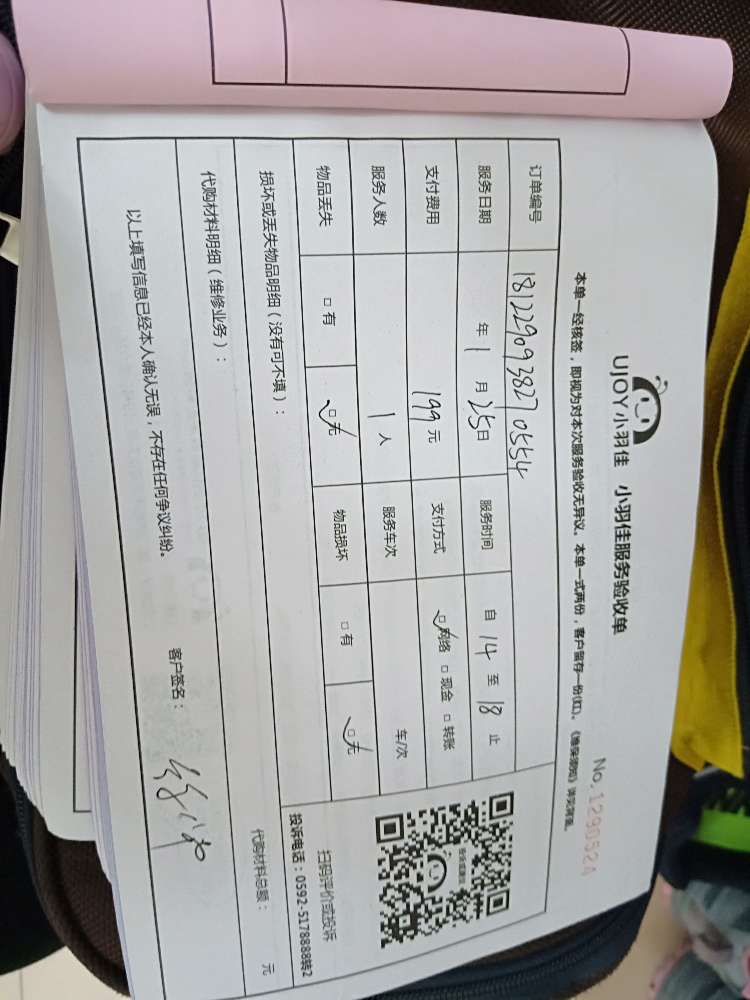 UJOY小羽佳 小羽佳服务验收单
No.1290524
本单一经核签，即视为对本次服务验收无异议。本单一式两份，客户留存一份(红)。《维保须知》详见背面。
订单编号 181229093827 0554
服务日期 年 1 月 25 日 服务时间 自 14 至 18 止
支付费用 199 元 支付方式 ☑网络 □现金 □转账
服务人数 1 人 服务车次 车/次
物品丢失 □有 ☑无 物品损坏 □有 ☑无
扫码评价或投诉
投诉电话：0592-5178888转2
损坏或丢失物品明细（没有可不填）：
代购材料明细（维修业务）： 代购材料总额： 元
以上填写信息已经本人确认无误，不存在任何争议纠纷。
客户签名：